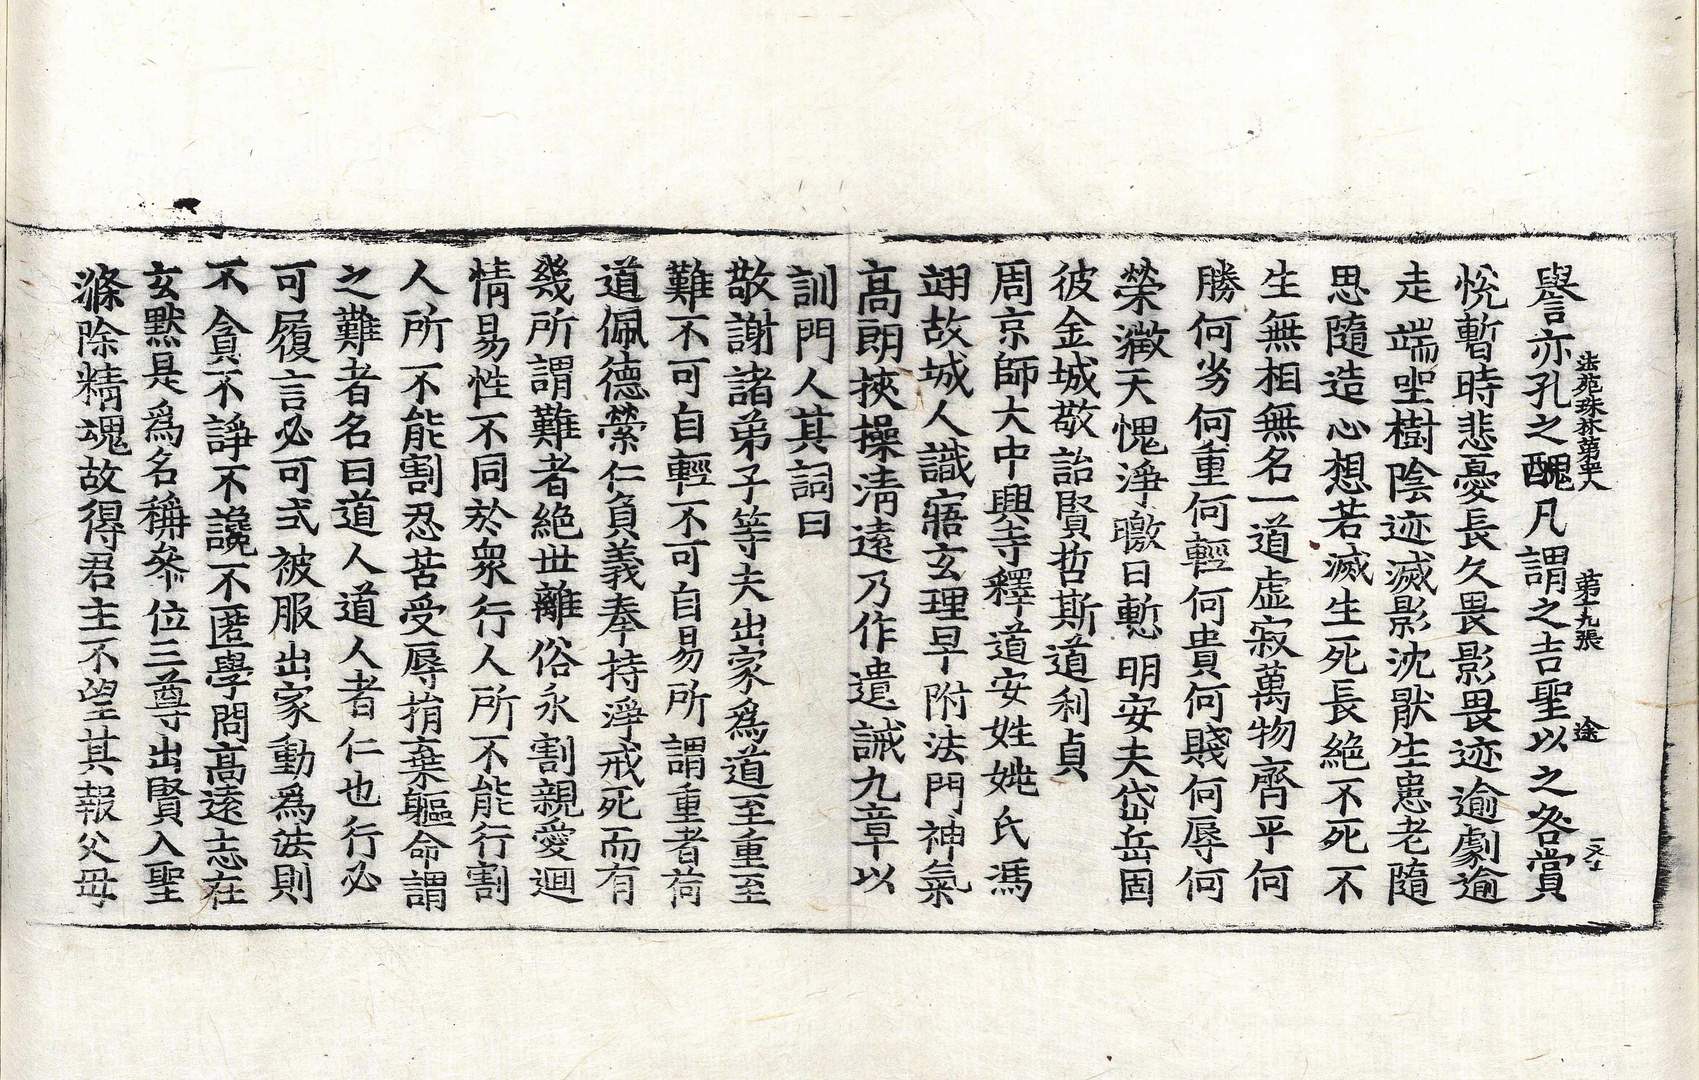 法苑珠林第四十八 第十九張 途
譽亦孔之醜凡謂之吉聖以之咎賞
悅暫時悲憂長久畏影畏迹逾劇逾
走端坐樹陰迹滅影沈厭生患老隨
思隨造心想若滅生死長絕不死不
生無相無名一道虛寂萬物齊平何
勝何劣何重何輕何貴何賤何辱何
榮澂天愧淨曒日慙明安夫岱岳固
彼金城敬詒賢哲斯道利貞
周京師大中興寺釋道安姓姚氏馮
翊故城人識寤玄理早附法門神氣
高朗挾操清遠乃作遺誡九章以
訓門人其詞曰
敬謝諸弟子等夫出家爲道至重至
難不可自輕不可自易所謂重者荷
道佩德縈仁負義奉持淨戒死而有
幾所謂難者絕世離俗永割親愛迴
情易性不同於衆行人所不能行割
人所不能割忍苦受辱捐棄軀命謂
之難者名曰道人道人者仁也行必
可履言必可式被服出家動爲法則
不貪不諍不讒不匿學問高遠志在
玄默是爲名稱參位三尊出賢入聖
滌除精魂故得君主不望其報父母